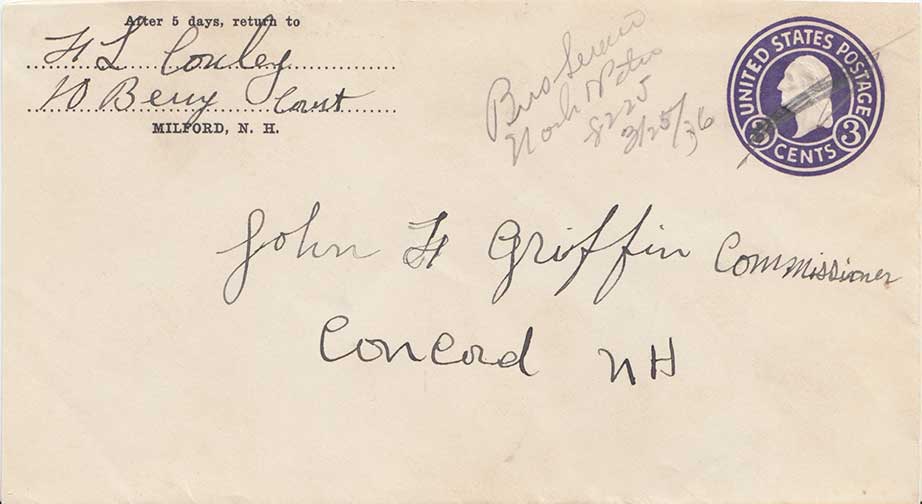 After 5 days, return to
H L Conley
10 Berry Court
MILFORD, N. H.
Bus Service
8225
3/25/36
UNITED STATES POSTAGE
3 CENTS 3
John H Griffin Commissioner
Concord NH